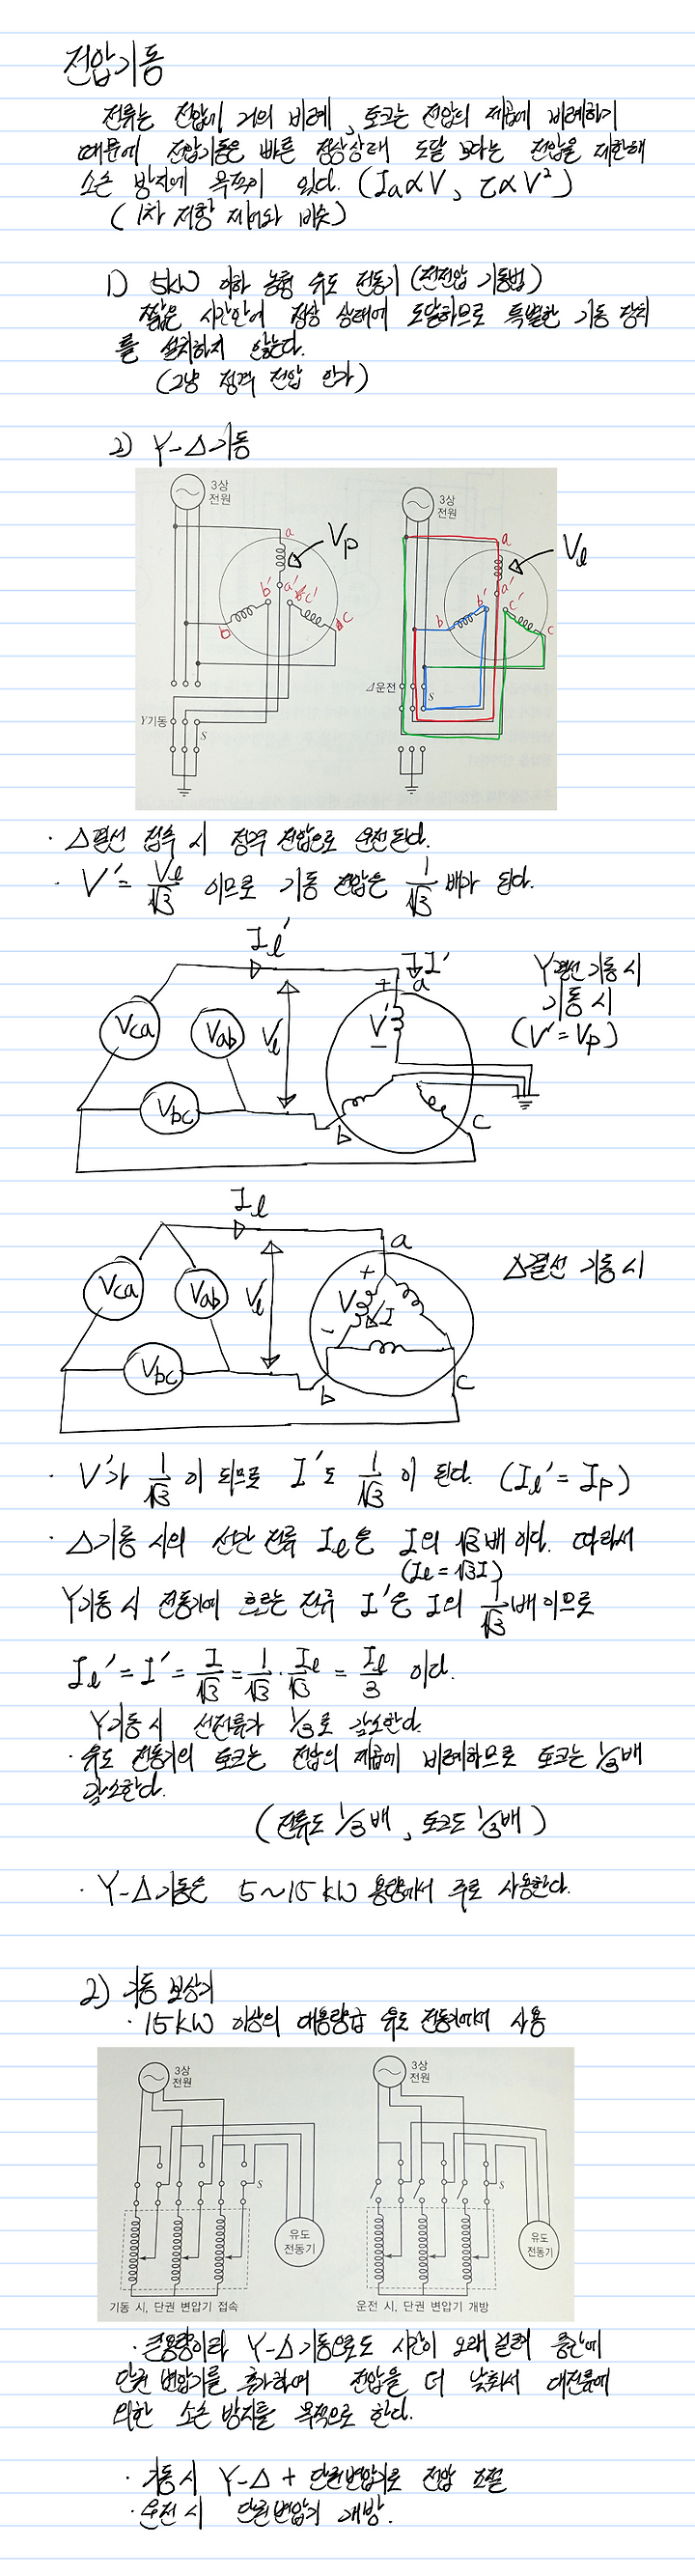 전압기동
전류는 전압에 거의 비례, 토크는 전압의 제곱에 비례하기
때문에 전압기동은 빠른 정상상태 도달 보다는 전압을 제한해
소손 방지에 목적이 있다. (Ia∝V, τ∝V²)
(1차 저항 제어와 비슷)
1) 5kW 이하 농형 유도 전동기 (전전압 기동법)
짧은 시간안에 정상 상태에 도달하므로 특별한 기동 장치
를 설치하지 않는다.
(그냥 정격 전압 인가)
2) Y-Δ기동
3상
전원
a
Vp
b'
a'
c'
b
c
Y기동
S
3상
전원
a
Vl
b'
a'
c'
b
c
Δ운전
S
· Δ결선 접속 시 정격 전압으로 운전된다.
· V' = Vl/√3 이므로 기동 전압은 1/√3 배가 된다.
Il'
I'
Vca
Vab
Vl
+
a
V'
-
Vbc
b
c
Y결선 기동 시
기동 시
(V' = Vp)
Il
a
Vca
Vab
Vl
+
V
I
-
Vbc
b
c
Δ결선 기동 시
· V'가 1/√3 이 되므로 I'도 1/√3 이 된다. (Il' = Ip)
· Δ기동 시의 선간 전류 Il은 I의 √3배 이다. 따라서
(Il = √3I)
Y기동 시 전동기에 흐르는 전류 I'은 I의 1/√3 배 이므로
Il' = I' = I/√3 = 1/√3 · Il/√3 = Il/3 이다.
Y기동 시 선전류가 1/3로 감소한다.
· 유도 전동기의 토크는 전압의 제곱에 비례하므로 토크는 1/3배
감소한다.
(전류도 1/3배, 토크도 1/3배)
· Y-Δ기동은 5~15kW 용량에서 주로 사용한다.
2) 기동 보상기
· 15kW 이상의 대용량급 유도 전동기에서 사용
3상
전원
S
유도
전동기
기동 시, 단권 변압기 접속
3상
전원
S
유도
전동기
운전 시, 단권 변압기 개방
· 큰용량이라 Y-Δ기동으로도 시간이 오래 걸려 중간에
단권 변압기를 추가하여 전압을 더 낮춰서 대전류에
의한 소손 방지를 목적으로 한다.
· 기동 시 Y-Δ + 단권변압기로 전압 조절
· 운전 시 단권변압기 개방.